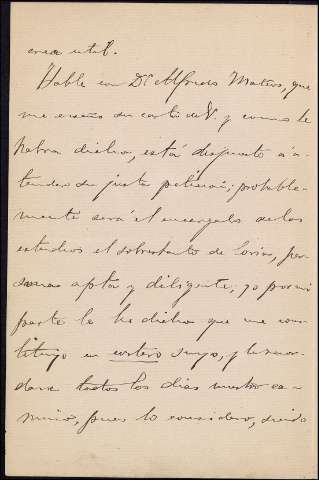 crea util.
Hablé con Dn Alfredo Mateos, que
me enseño su carta de V. y como le
habra dicho, está dispuesto á a-
tender su justa peticion; probable-
mente será el encargado de los
estudios el sobrestante de Coria, per-
sona apta y diligente; yo por mi
parte le he dicho que me cons-
tituyo en cartero suyo, y le recor-
dare todos los dias nuestro ca-
mino, pues lo considero, siendo